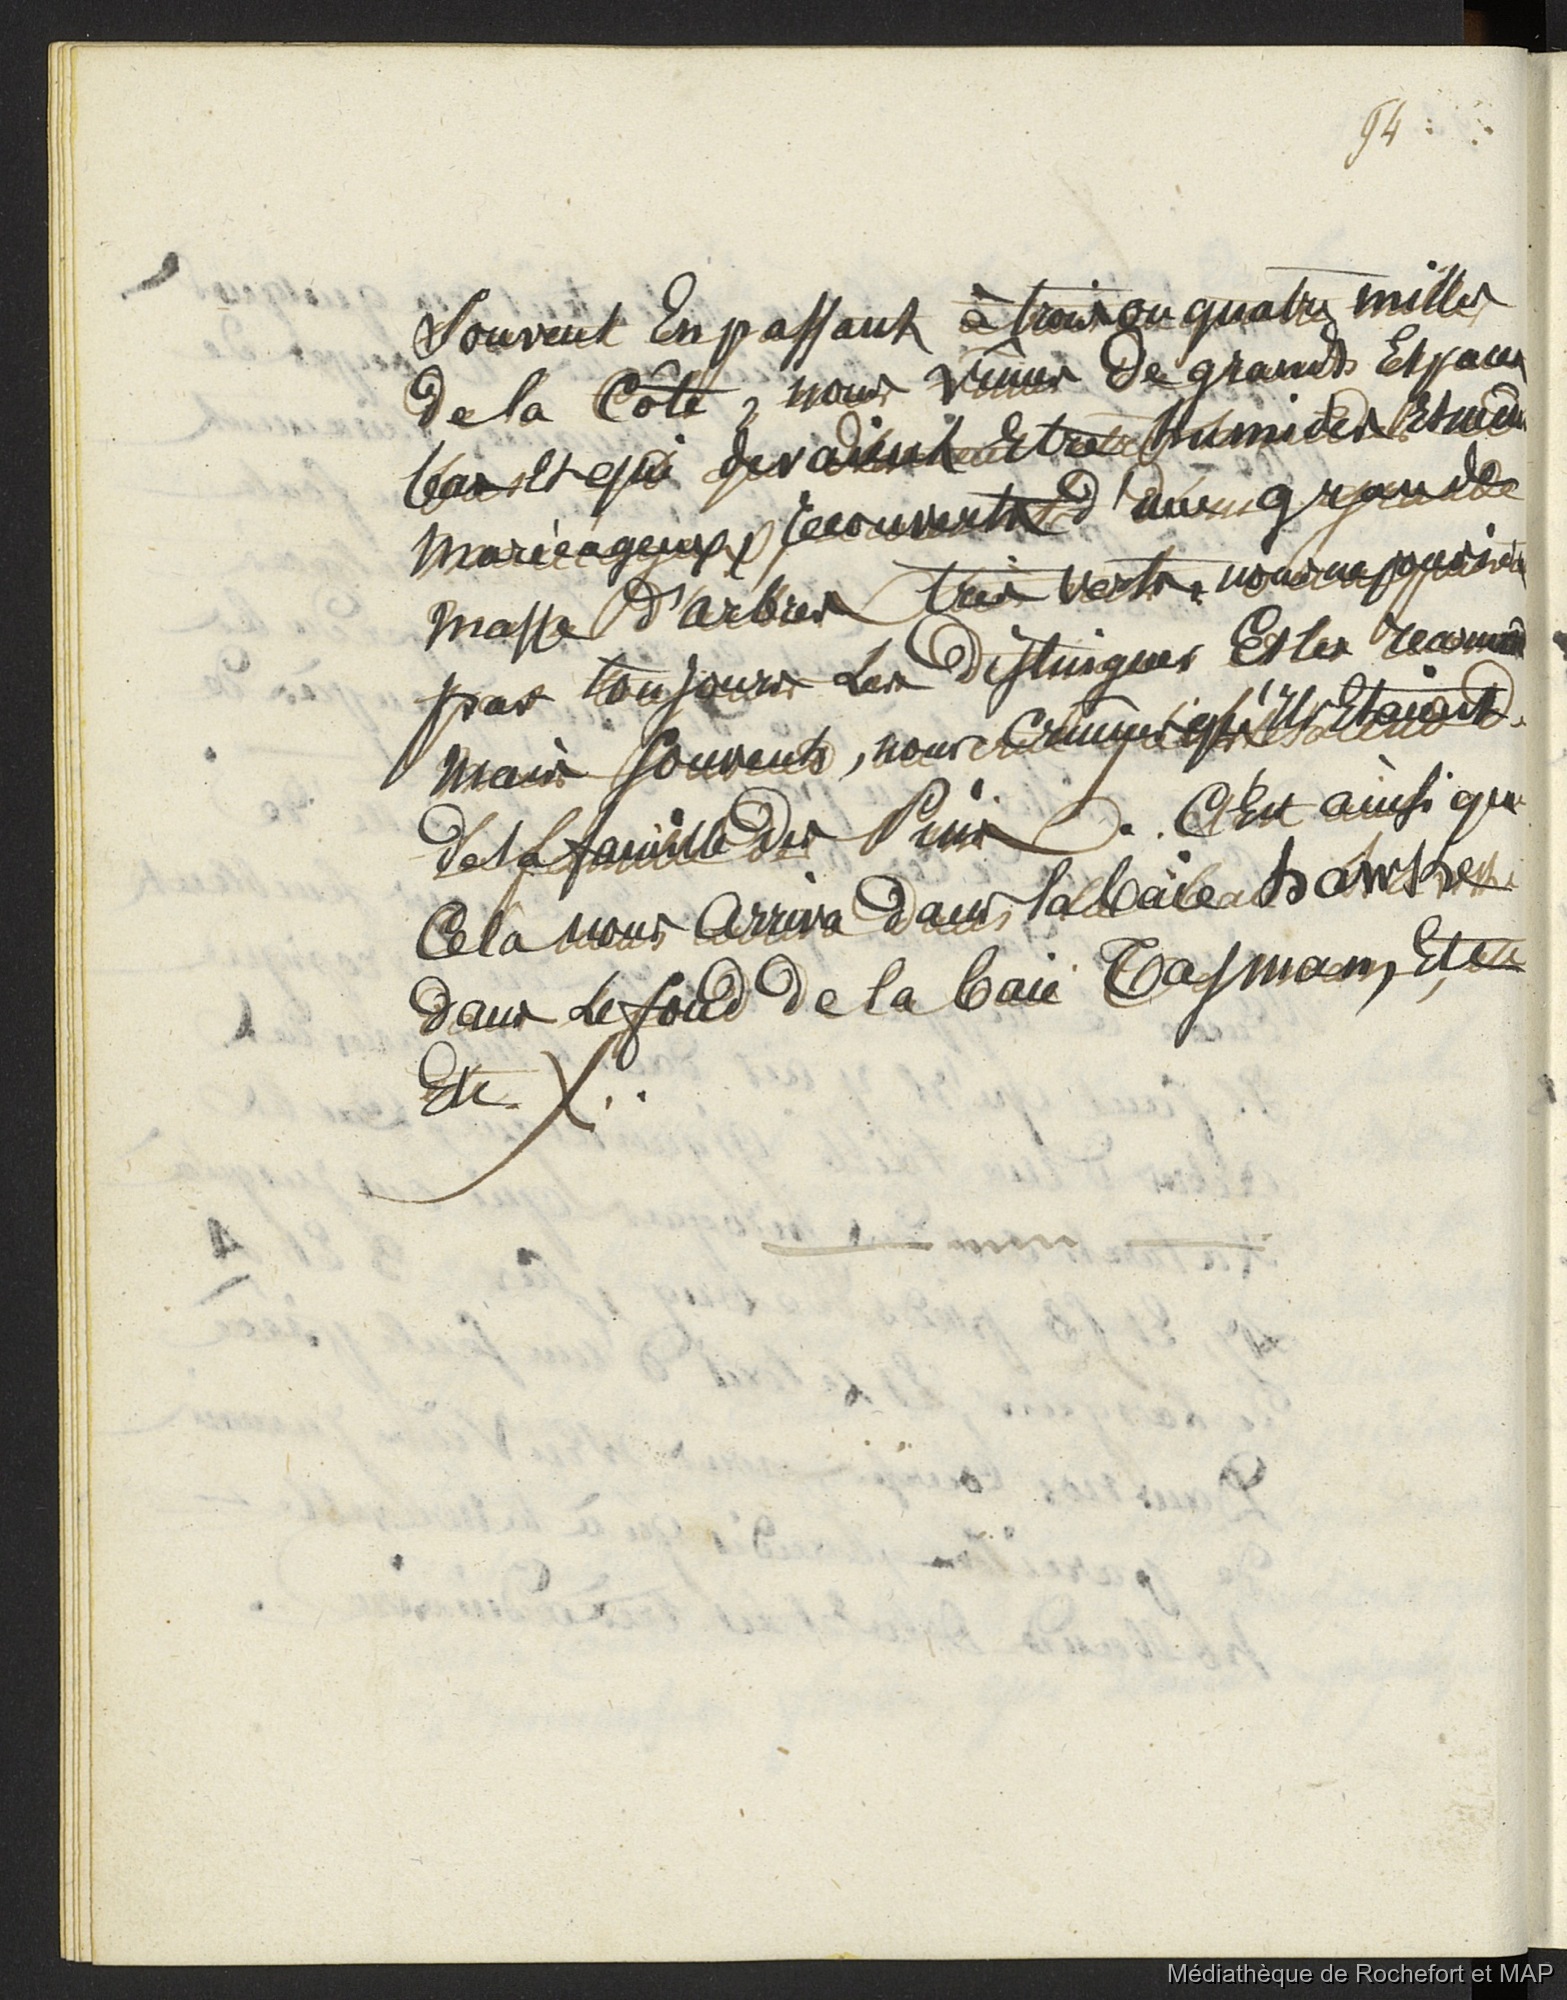 94
Souvent En passant à trois ou quatre milles
de la Côte, nous vîmes de grands Espaces
bas Et qui devaient Etre humides Et même
marécageux, recouverts d'une grande
masse d'arbres très verts, nous ne pouvions
pas toujours Les distinguer Et les reconnaître
mais souvent, nous crumes qu'ils Etaient
de la famille des Pins. C'Est ainsi que
Cela nous arriva dans la baie hawke
dans Le fond de la baie Tasman, Etc
Etc
Médiathèque de Rochefort et MAP